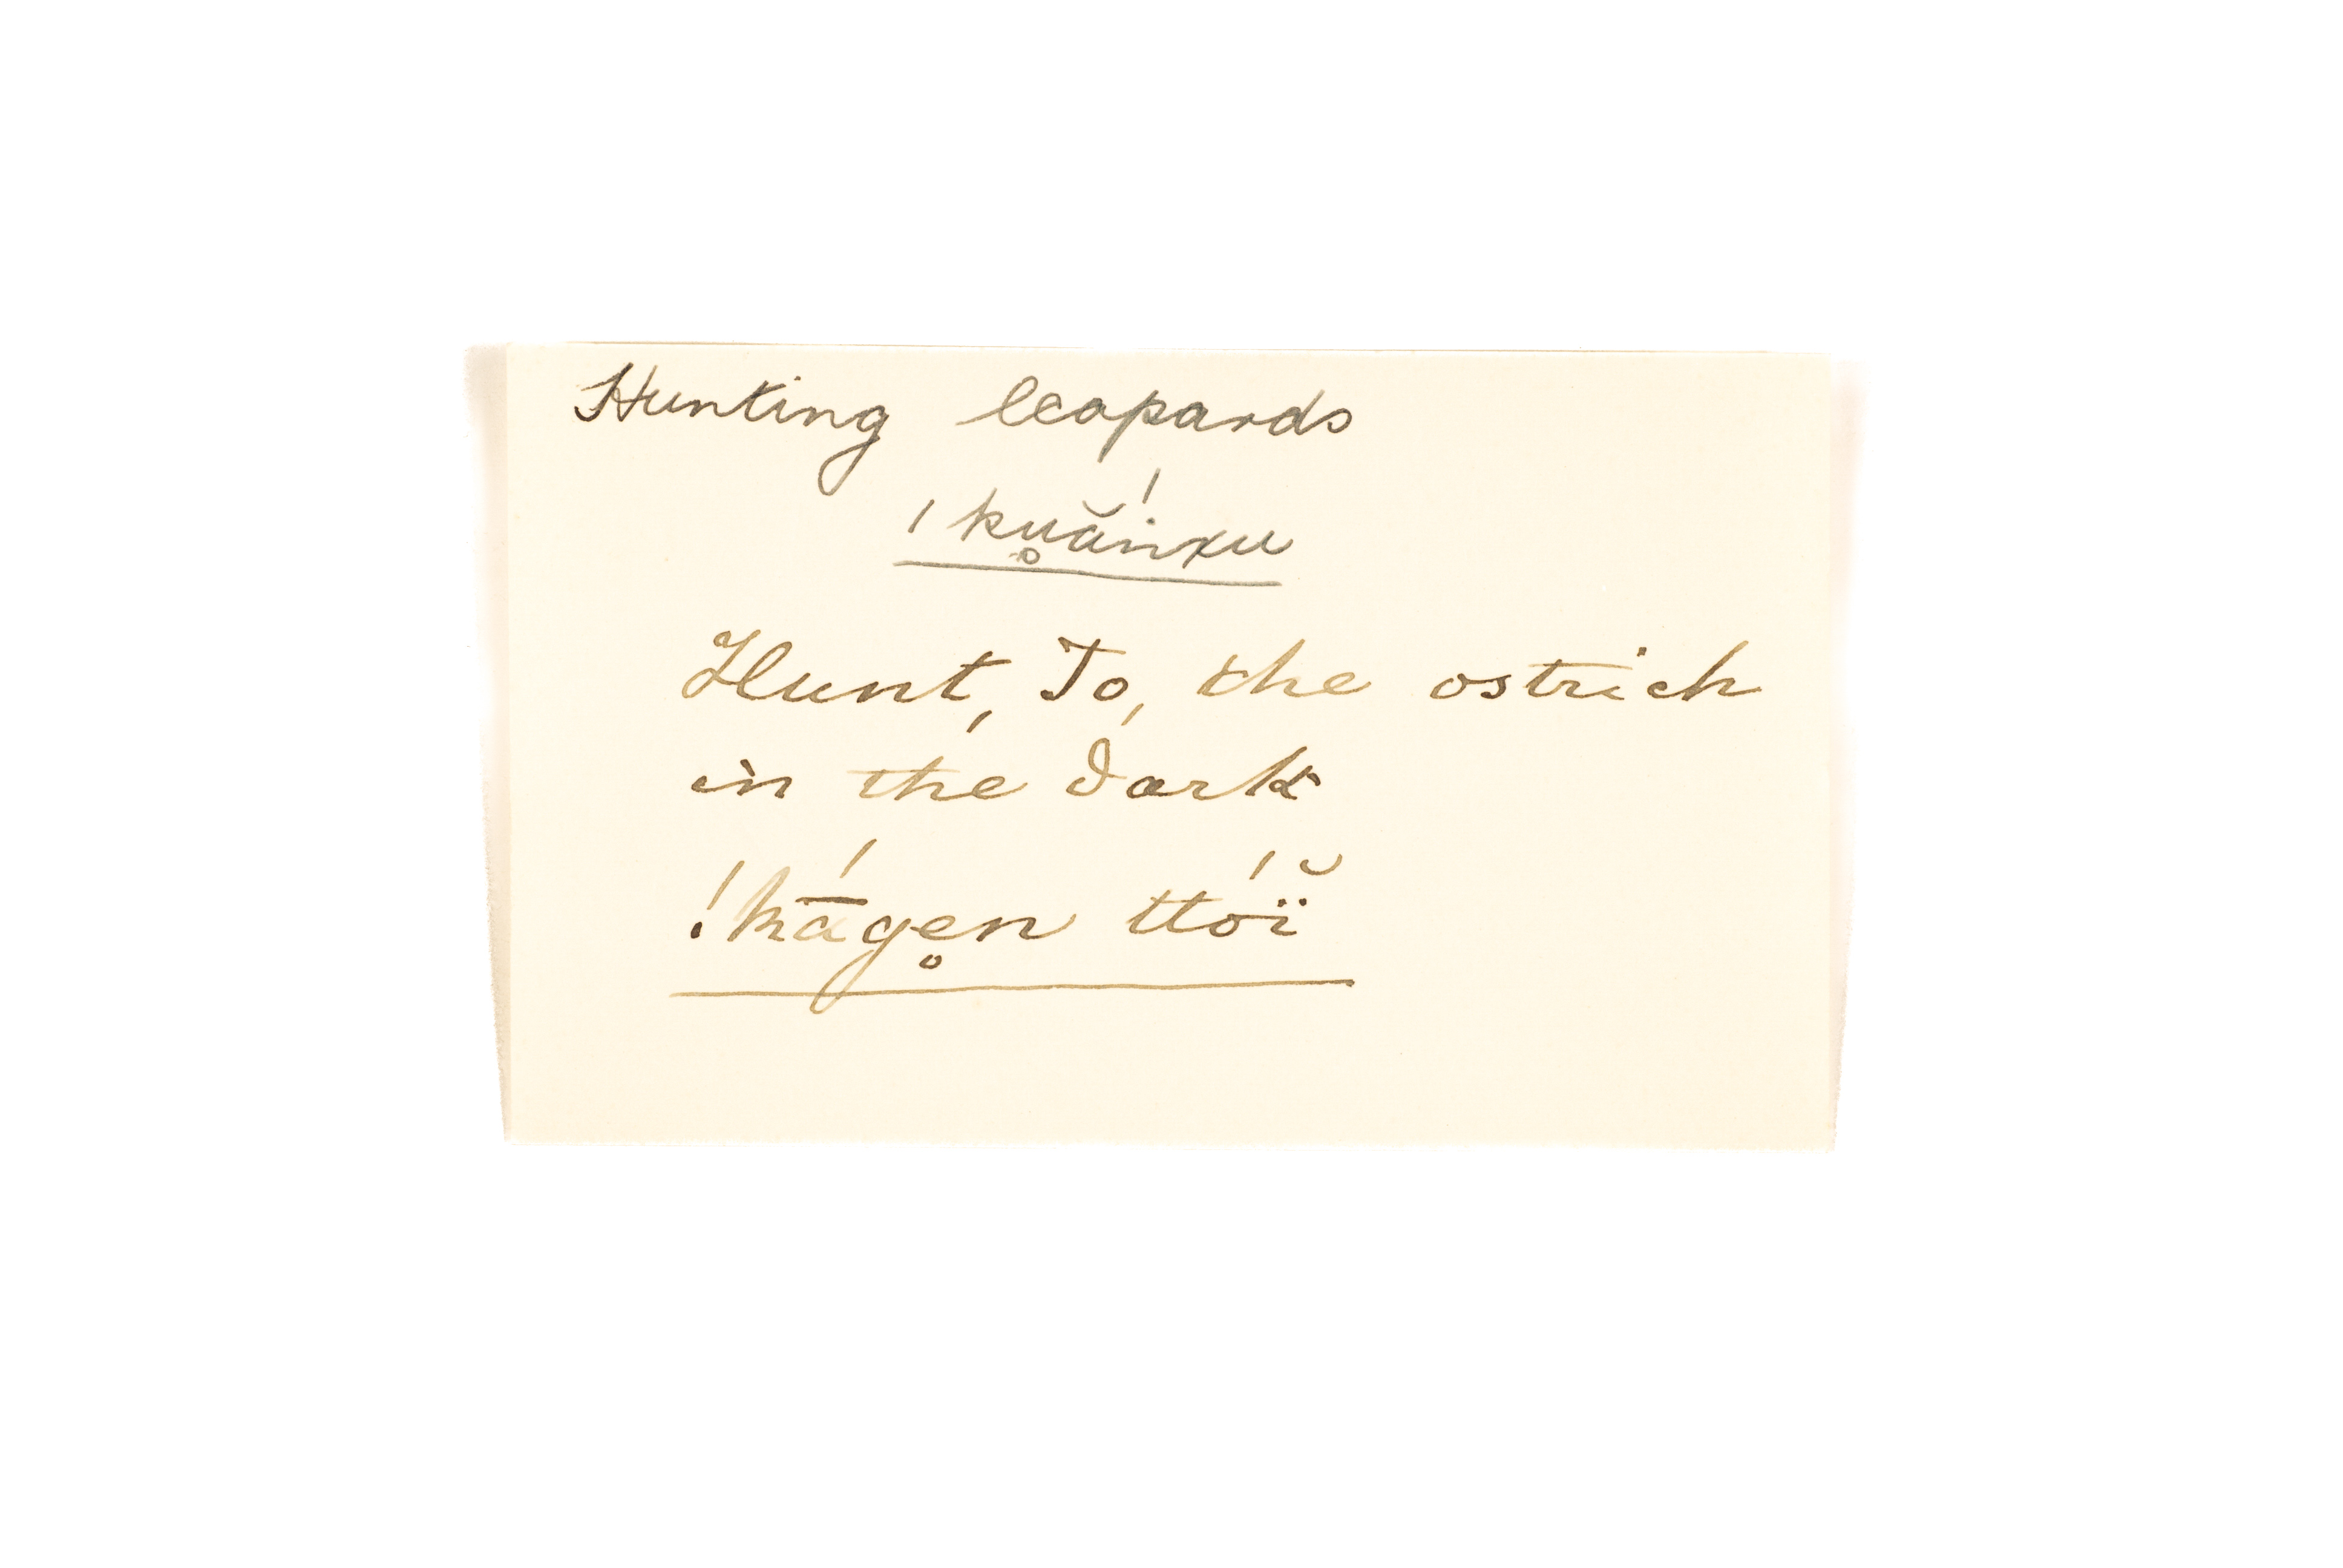 Hunting leopards
ǀku̥ắinxu
Hunt, To, the ostrich
in the dark
!kā́ge̥n ttóï̆